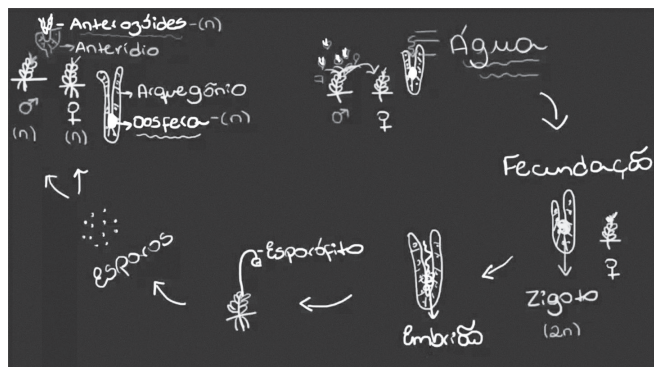 Anterozóides-(n)
Anterídio
Arquegônio
Oosfera-(n)
♂ ♀
(n) (n)
Água
♂ ♀
Fecundação
♀
Zigoto
(2n)
Embrião
Esporófito
Esporos